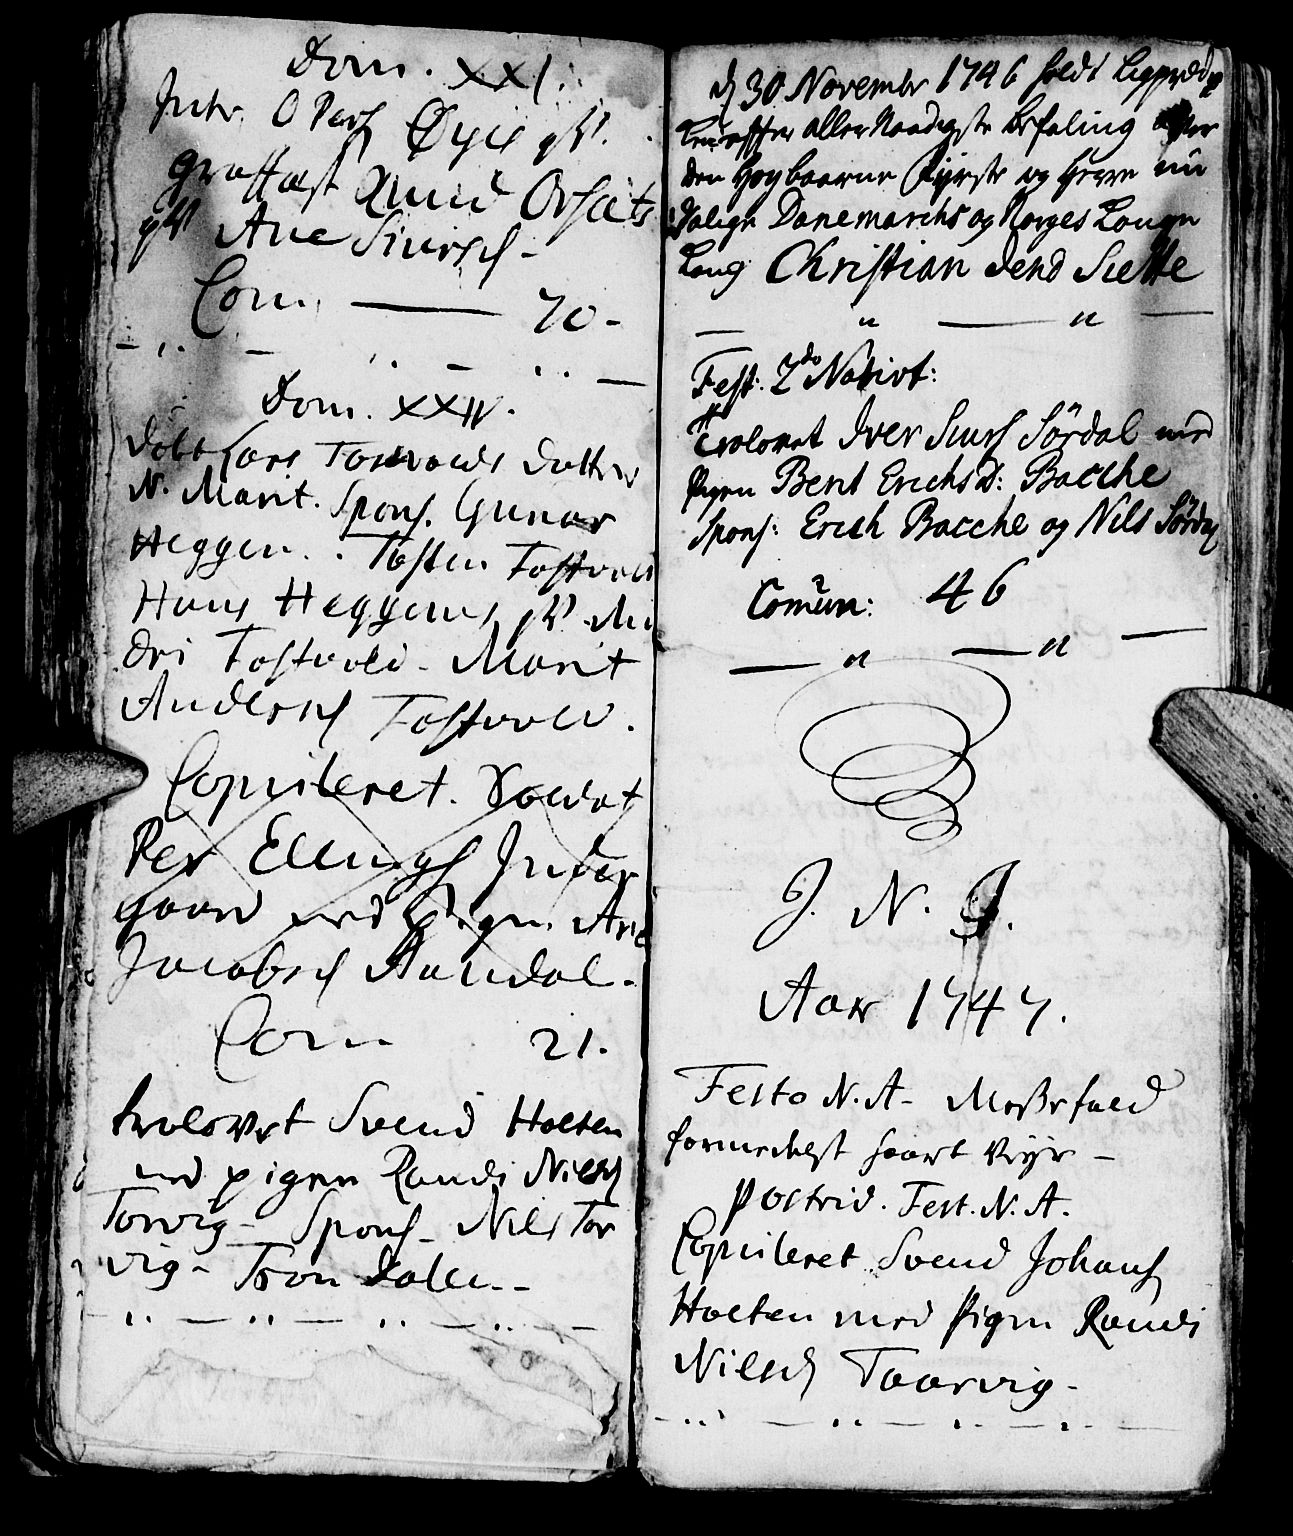 Dom. XXI.
Intr. O Pers Øyes qv.
graffæst Qnud Orsets
qv Ane Siursd -
Com. — 70 -
Dom. XXIV.
døbt Lars Tostvolds datter
N. Marit. Spons. Gunar
Heggen. Tosten Tostvold
Hans Heggems qv
dri Tostvold - Marit
Andersd Tostvold.
Copuleret. Soldat
Per Ellings Inder
gaard med Pigen Ane
Jacobsd Aandal.
Com 21.
trolovet Svend Holten
med pigen Randi Nielsd
Torvig - Spons - Nils Tor
vig - Tron Dalen -
d 30 November 1746 holdt Ligpræd
allerNaadigste befaling efter
den Høybaarne Fyrste og Herre nu
salige Danemarchs og Norges Konge
Kong Christian dend Siette
Fest. 2do Nativt:
Trolovet Iver Siurs Sördal med
Pigen Berit ErichsD: Bacche
Spons: Erich Bacche og Nils Sördal
Comun: 46
J. N. J.
Aar 1747.
Festo N. A - Meßefald
formedelst haart Veyr -
Postrid. Fest. N. A.
Copuleret Svend Johans
Holten med Pigen Randi
Nielsd Taarvig -